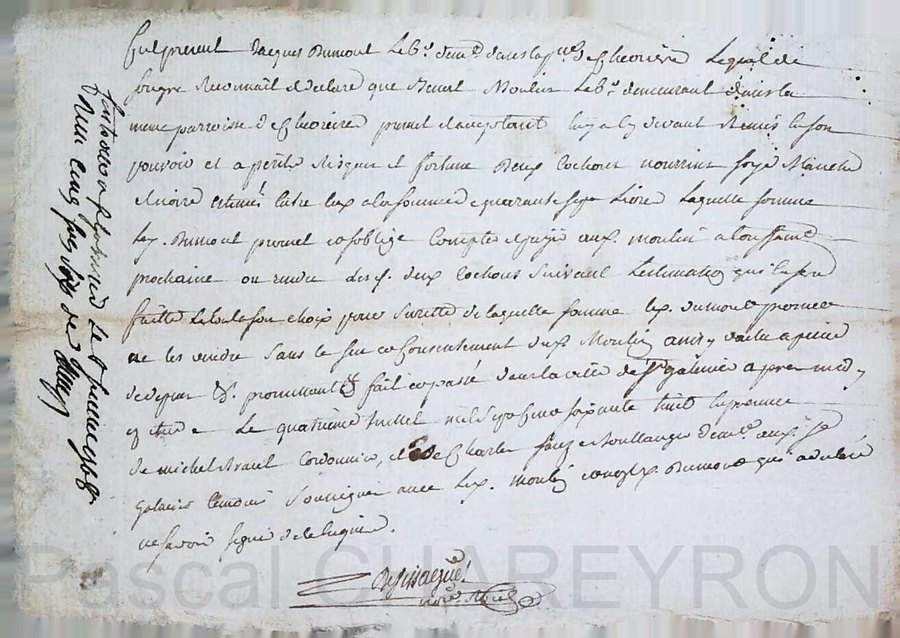 fut present Jacques Dumont Lab.r dem.t dans la p.sse de Cheorière Lequel de
son gre Reconnoit et declare que Benoit Moulin Lab.r demeurant dans la
meme parroisse de Cheoriere present et acceptant luy a cy devant Remis en son
pouvoir et a perite Risque et fortune Deux Cochons nourrins soye Blanche
et noire estimés entre eux a la somme de quarante sept Livres Laquelle somme
Led. Dumont promet et soblige Compter et payer aud. moulin a la toussaint
prochaine ou rendre Lesd. deux Cochons Suivant Lestimation quy en sera
faitte Le tout a son choix pour Suretté de laquelle somme led. dumont promet
ne les vendre Sans le sceu et Consentement dud. Moulin ainsy voulu a peine
de depens &c. promettant &c fait et passé dans la ville de St galmier apres midy
Le quatrieme Juillet mil Sept Cent soixante huit En presence
de michel Cordonnier, et de Charles Boullanger dem.t aud. St
galmier temoins Soussignes avec Led. moulin et non led. Dumont qui a declaré
ne savoir signer de ce Enquis.
nore. Royal
Le 6
Recu Cinq sols
Pascal CHAREYRON